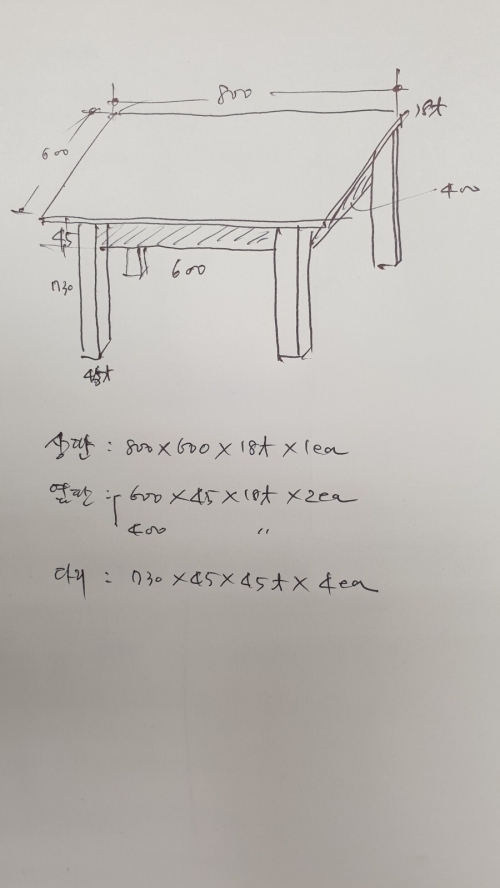 800
18t
600
400
45
600
730
45t
상판 : 800×600×18t×1ea
옆판 : 600×45×18t×2ea
400 〃
다리 : 730×45×45t×4ea